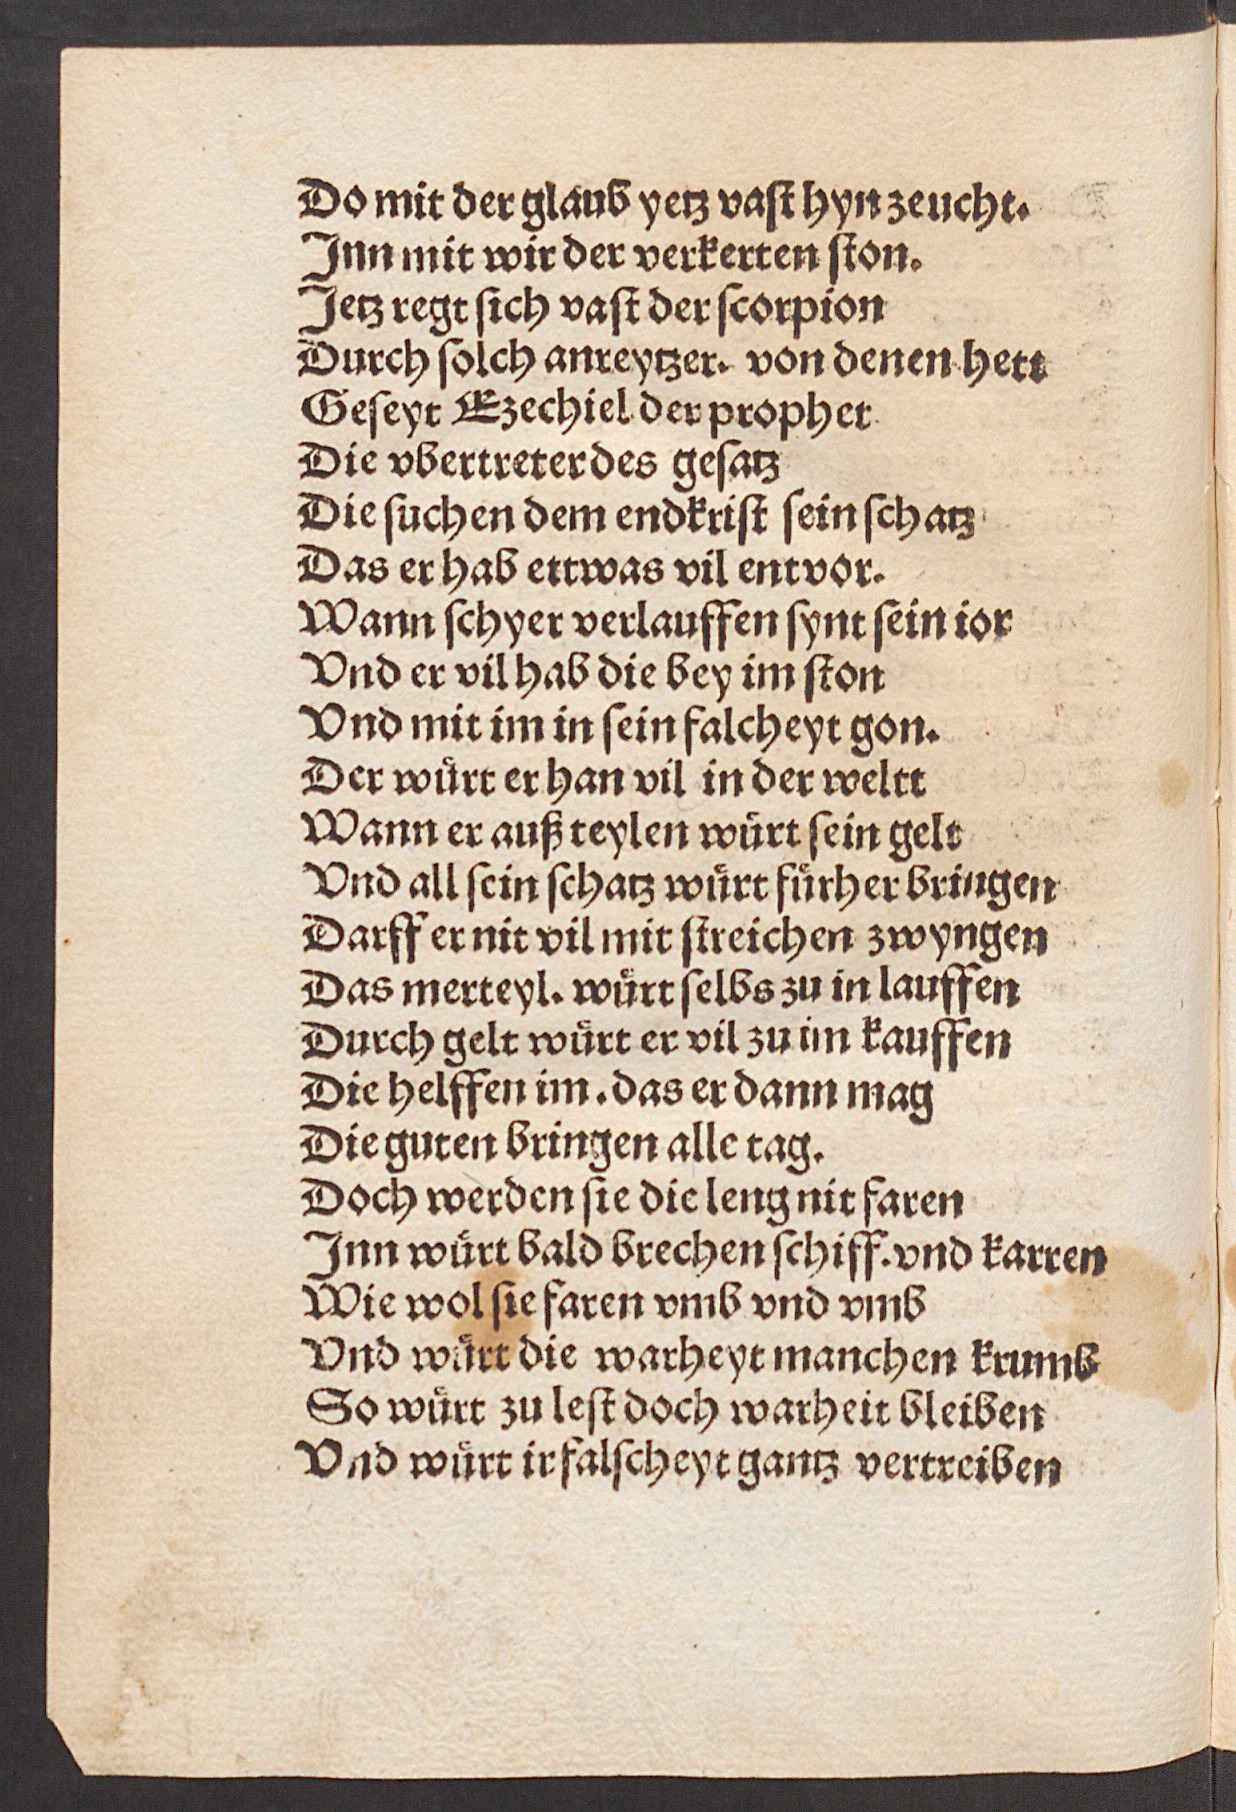 Do mit der glaub yetz vast hyn zeucht.
Inn mit wir der verkerten ston.
Jetz regt sich vast der scorpion
Durch solch anreytzer. von denen hett
Geseyt Ezechiel der prophet
Die vbertreter des gesatz
Die suchen dem endkrist sein schatz
Das er hab ettwas vil entvor.
Wann schyer verlauffen synt sein ior
Vnd er vil hab die bey im ston
Vnd mit im in sein falcheyt gon.
Der wuͤrt er han vil in der weltt
Wann er auß teylen wuͤrt sein gelt
Vnd all sein schatz wuͤrt fuͤrher bringen
Darff er nit vil mit streichen zwyngen
Das merteyl. wuͤrt selbs zu in lauffen
Durch gelt wuͤrt er vil zu im kauffen
Die helffen im. das er dann mag
Die guten bringen alle tag.
Doch werden sie die leng nit faren
Inn wuͤrt bald brechen schiff. vnd karren
Wie wol sie faren vmb vnd vmb
Vnd wuͤrt die warheyt manchen krumb
So wuͤrt zu lest doch warheit bleiben
Vnd wuͤrt ir falscheyt gantz vertreiben